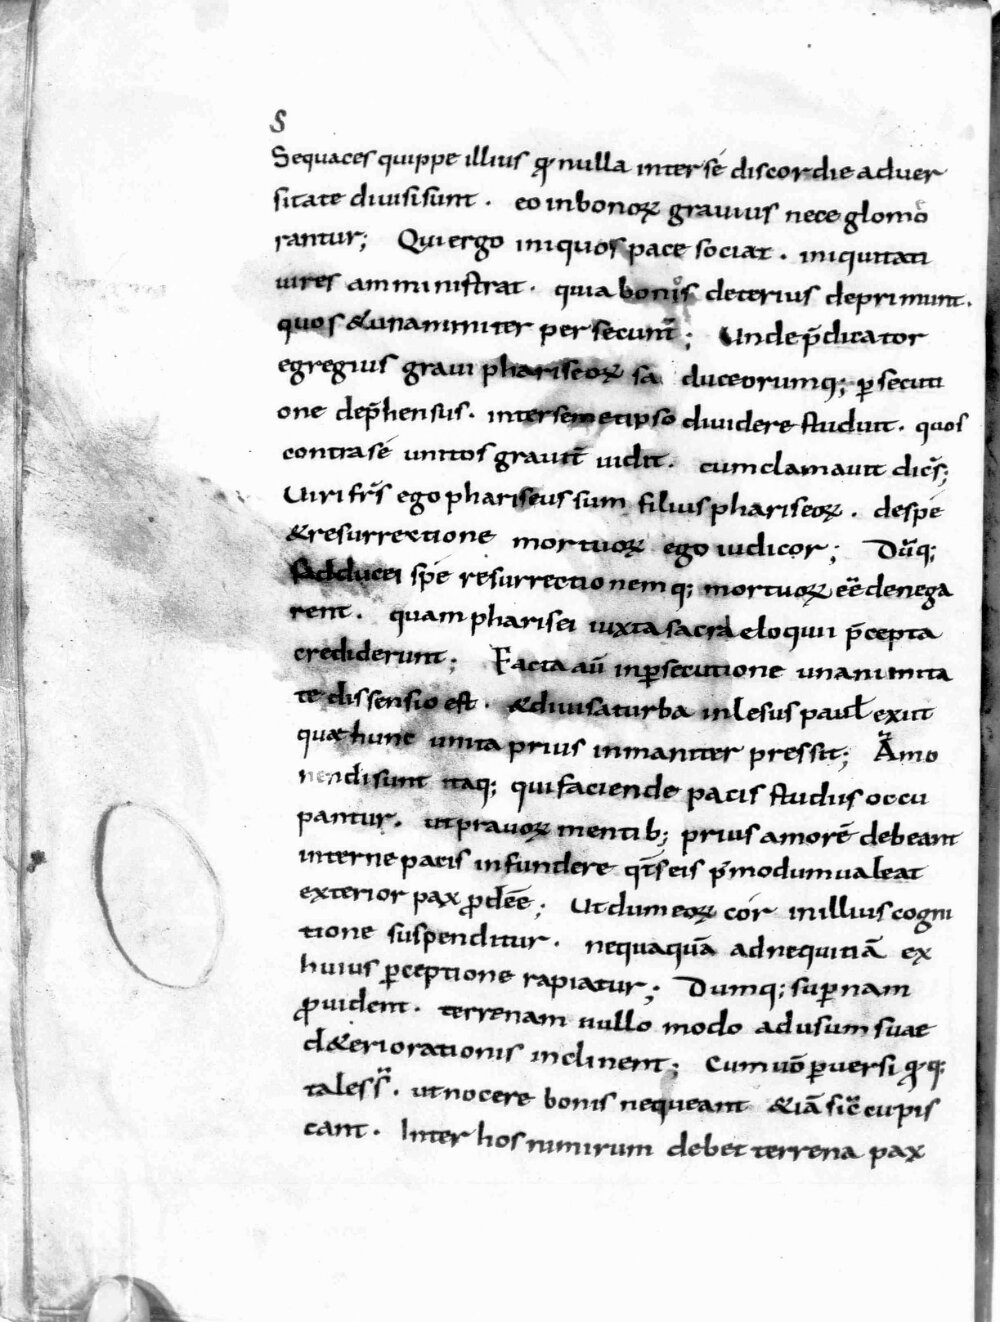 S
Sequaces quippe illius qͥ nulla inter se discordie aduer
sitate diuisi sunt . eo in bonoꝝ grauius nece glomo
rantur; Qui ergo iniquos pace sociat . iniquitati
uires amministrat . quia bonis deterius deprimunt .
quos & unanimiter persecunt̄; Unde p̄dicator
egregius graui phariseoꝝ sa duceorumq; ꝑsecuti
one dep̄hensus . inter semetipso diuidere studuit . quos
contra se unitos grauit̄ uidit . cum clamauit dic̄s;
Uiri fr̄s ego phariseus sum filius phariseoꝝ . de spe
& resurrectione mortuoꝝ ego iudicor; Dūq;
sadducei spē resurrectionemq; mortuoꝝ eē denega
rent . quam pharisei iuxta sacra eloquii p̄cepta
crediderunt; Facta aū in ꝑsecutione unanimita
te dissensio est . & diuisa turba inlesus paul̄ exiit
quæ hunc unita prius inmaniter pressit; Amo
nendi sunt itaq; qui faciende pacis studiis occu
pantur . ut prauoꝝ mentib; prius amorē debeant
interne pacis infundere qt̄s eis p̄modum ualeat
exterior pax ꝓdeē; Ut dum eoꝝ cor in illius cogni
tione suspenditur . nequaquā ad nequitiā ex
huius ꝑceptione rapiatur; Dumq; suꝑnam
ꝓuident . terrenam nullo modo ad usum suae
d&eriorationis inclinent; Cum uō ꝑuersi qͥq;
tales s̄ . ut nocere bonis nequeant &iā si c̄cupis
cant . Inter hos nimirum debet terrena pax